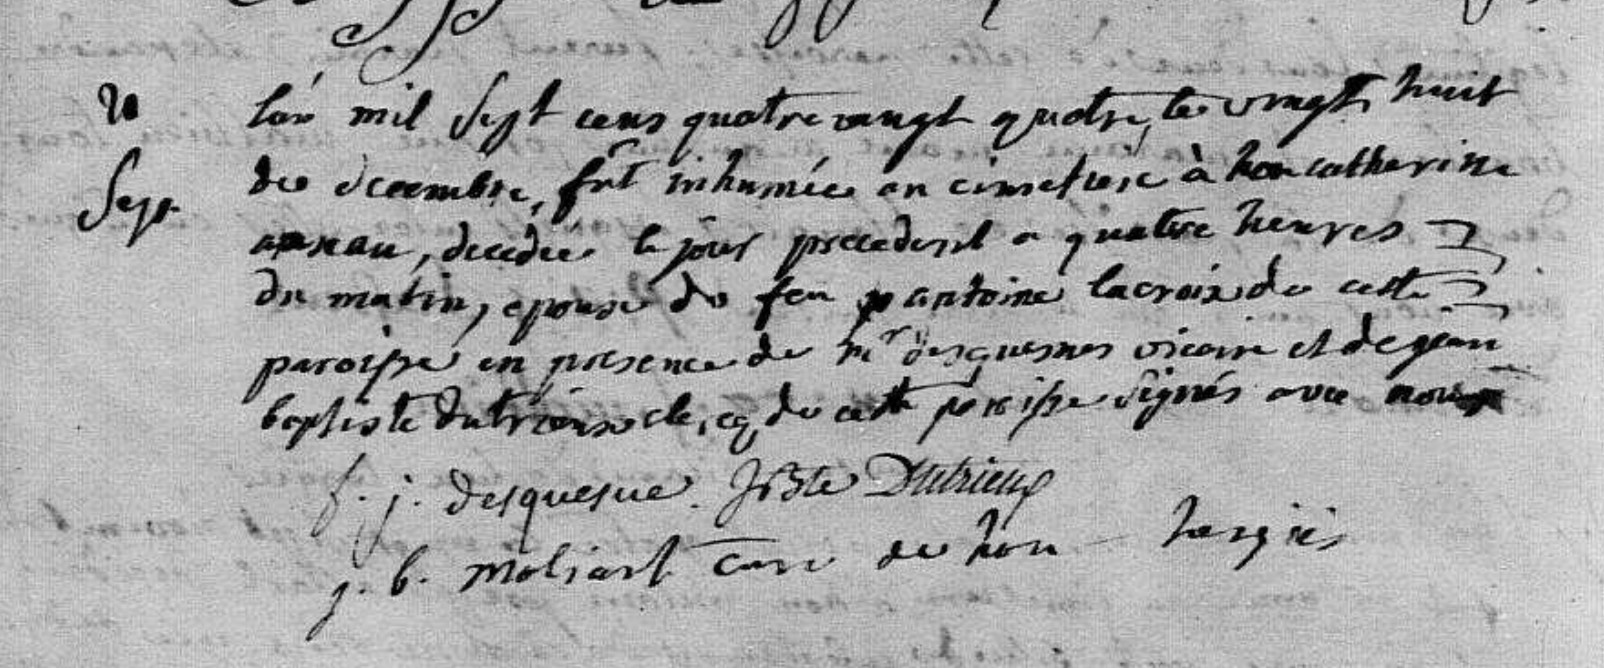 lan mil sept cens quatre vingt quatre, le vingt huit
de decembre, fut inhumée au cimetiere à hon catherine
décédée le jour precedent a quatre heures
du matin, epouse de feu antoine lacroix de cette
paroisse en presence de mr desquesnes vicaire et de jean
baptiste dutrieux clerc de cette paroisse signés avec nous
f. j. desquesne. JBte Dutrieux
j. b. moliart curé de hon hergies
Sept